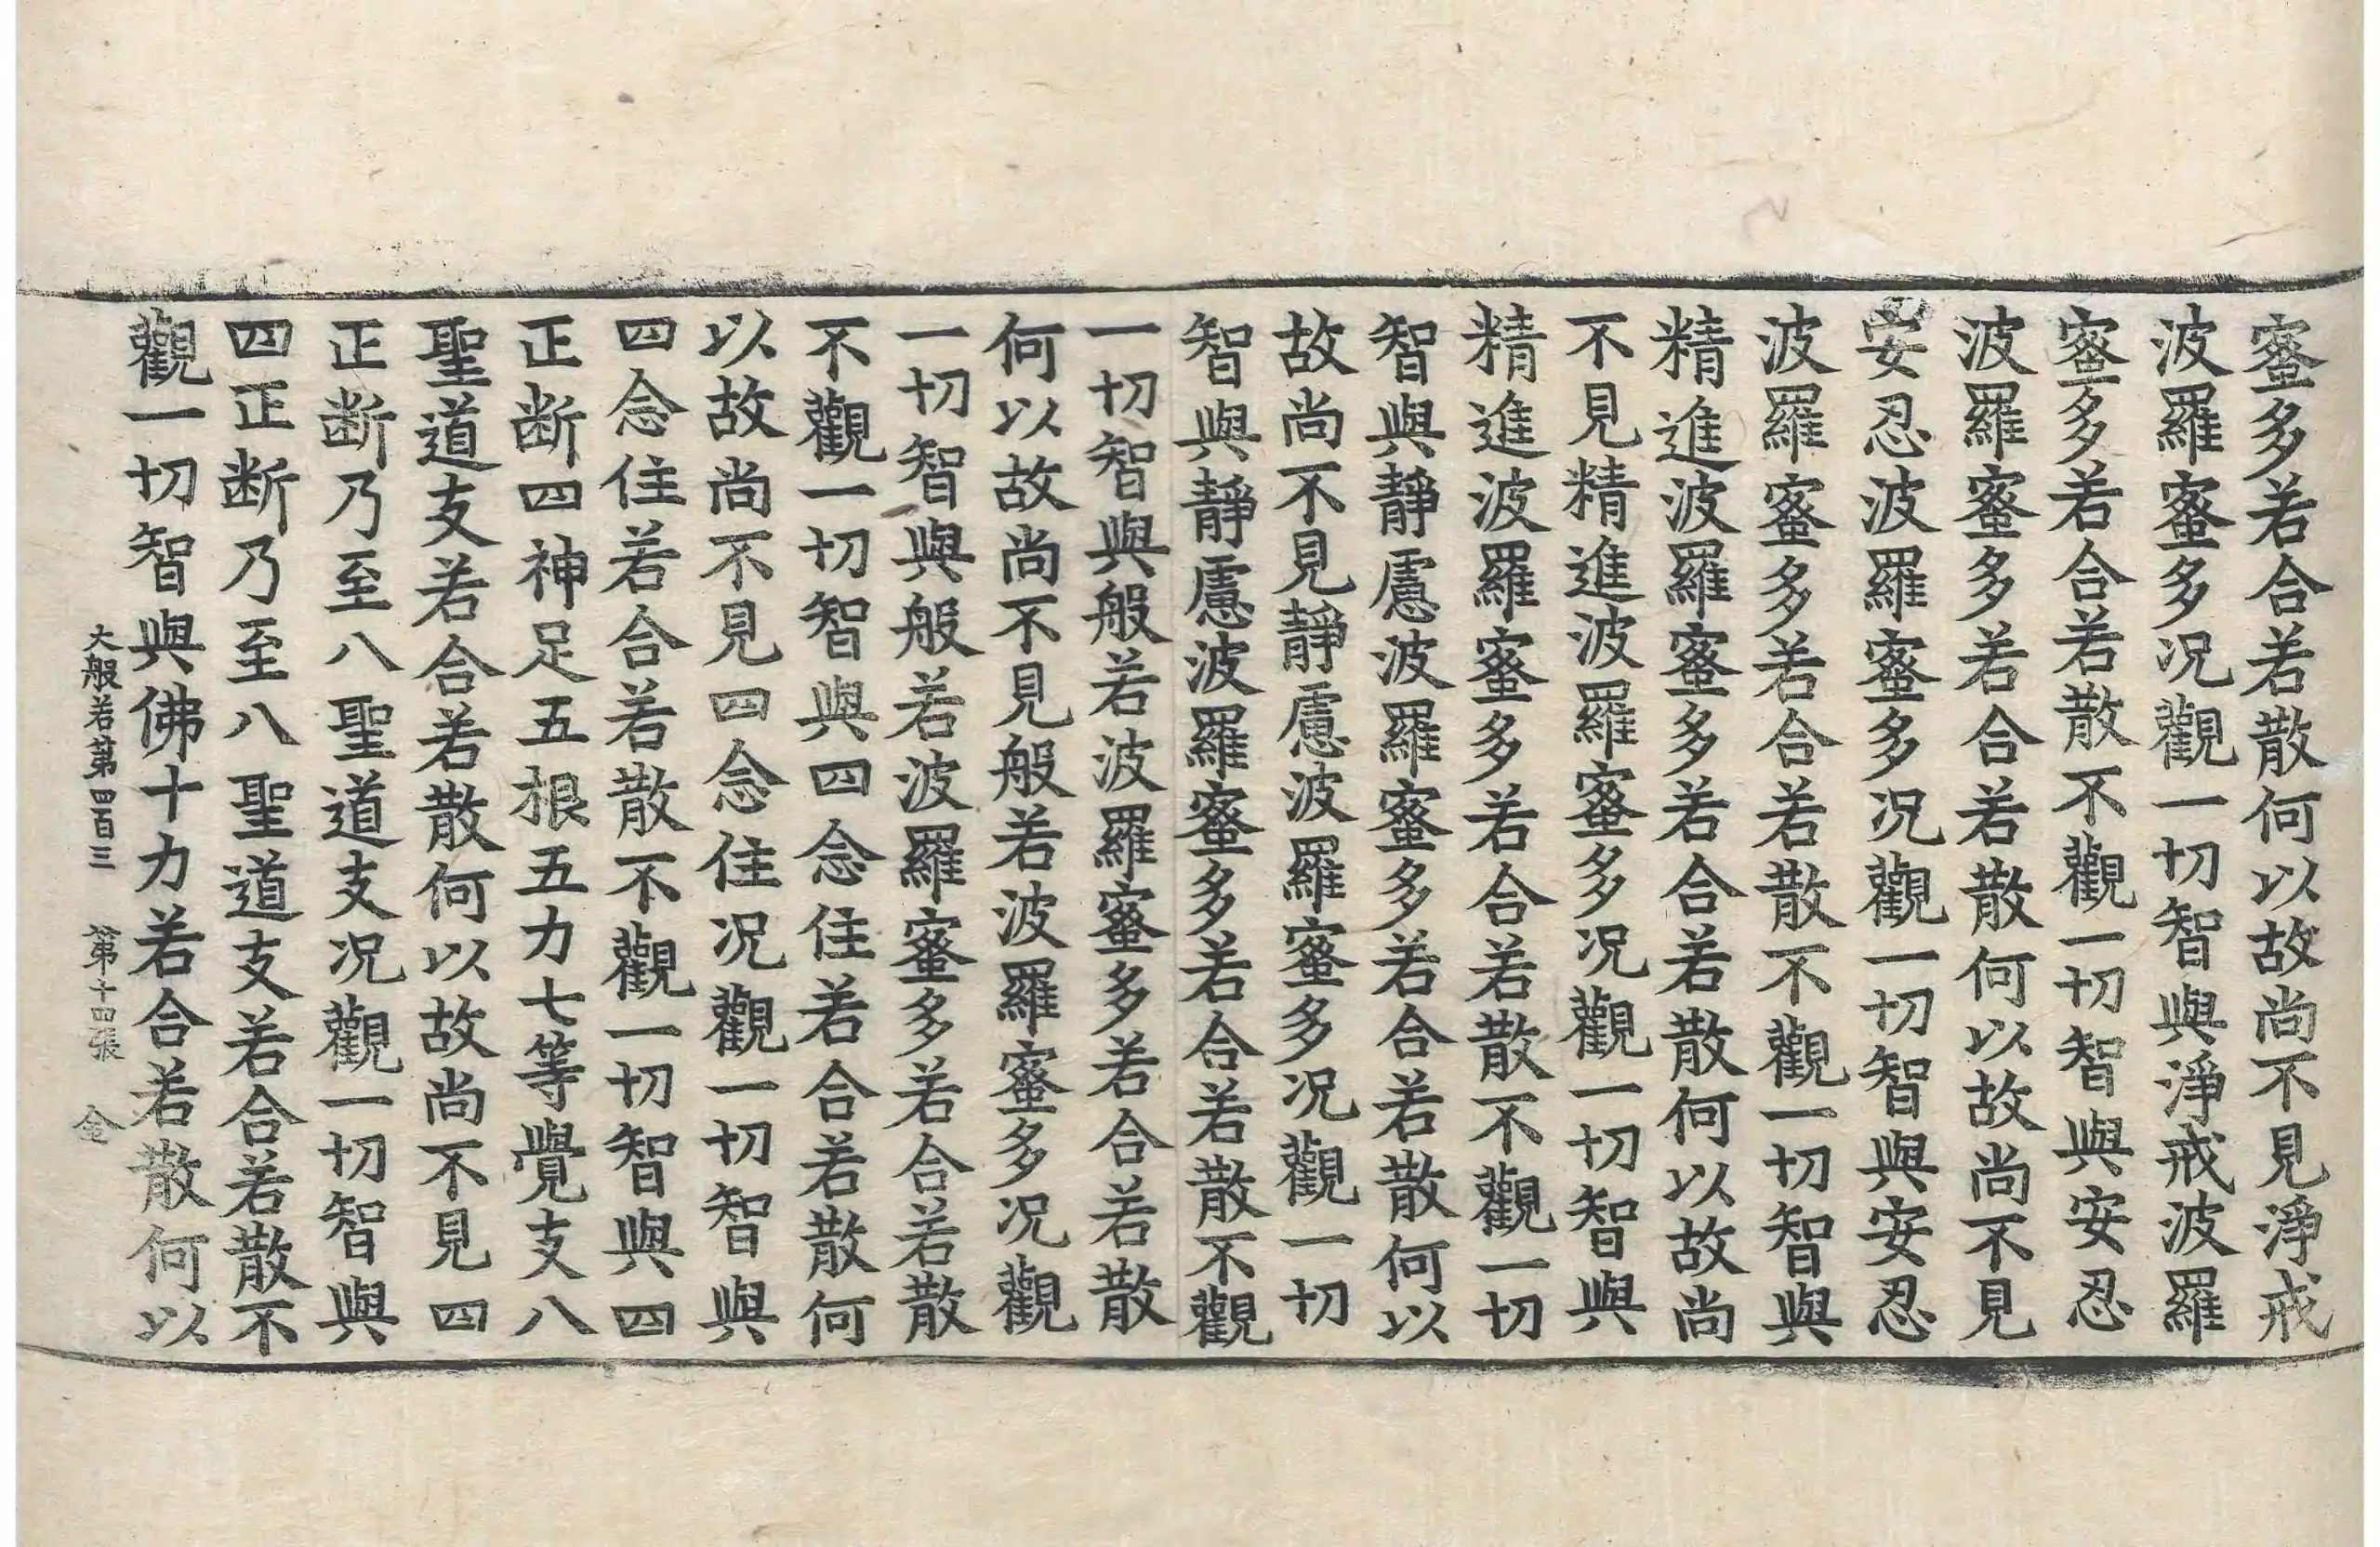 蜜多若合若散何以故尚不見淨戒
波羅蜜多况觀一切智與淨戒波羅
蜜多若合若散不觀一切智與安忍
波羅蜜多若合若散何以故尚不見
安忍波羅蜜多况觀一切智與安忍
波羅蜜多若合若散不觀一切智與
精進波羅蜜多若合若散何以故尚
不見精進波羅蜜多况觀一切智與
精進波羅蜜多若合若散不觀一切
智與靜慮波羅蜜多若合若散何以
故尚不見靜慮波羅蜜多况觀一切
智與靜慮波羅蜜多若合若散不觀
一切智與般若波羅蜜多若合若散
何以故尚不見般若波羅蜜多况觀
一切智與般若波羅蜜多若合若散
不觀一切智與四念住若合若散何
以故尚不見四念住况觀一切智與
四念住若合若散不觀一切智與四
正断四神足五根五力七等覺支八
聖道支若合若散何以故尚不見四
正断乃至八聖道支况觀一切智與
四正断乃至八聖道支若合若散不
觀一切智與佛十力若合若散何以
大般若第四百三 第十四張